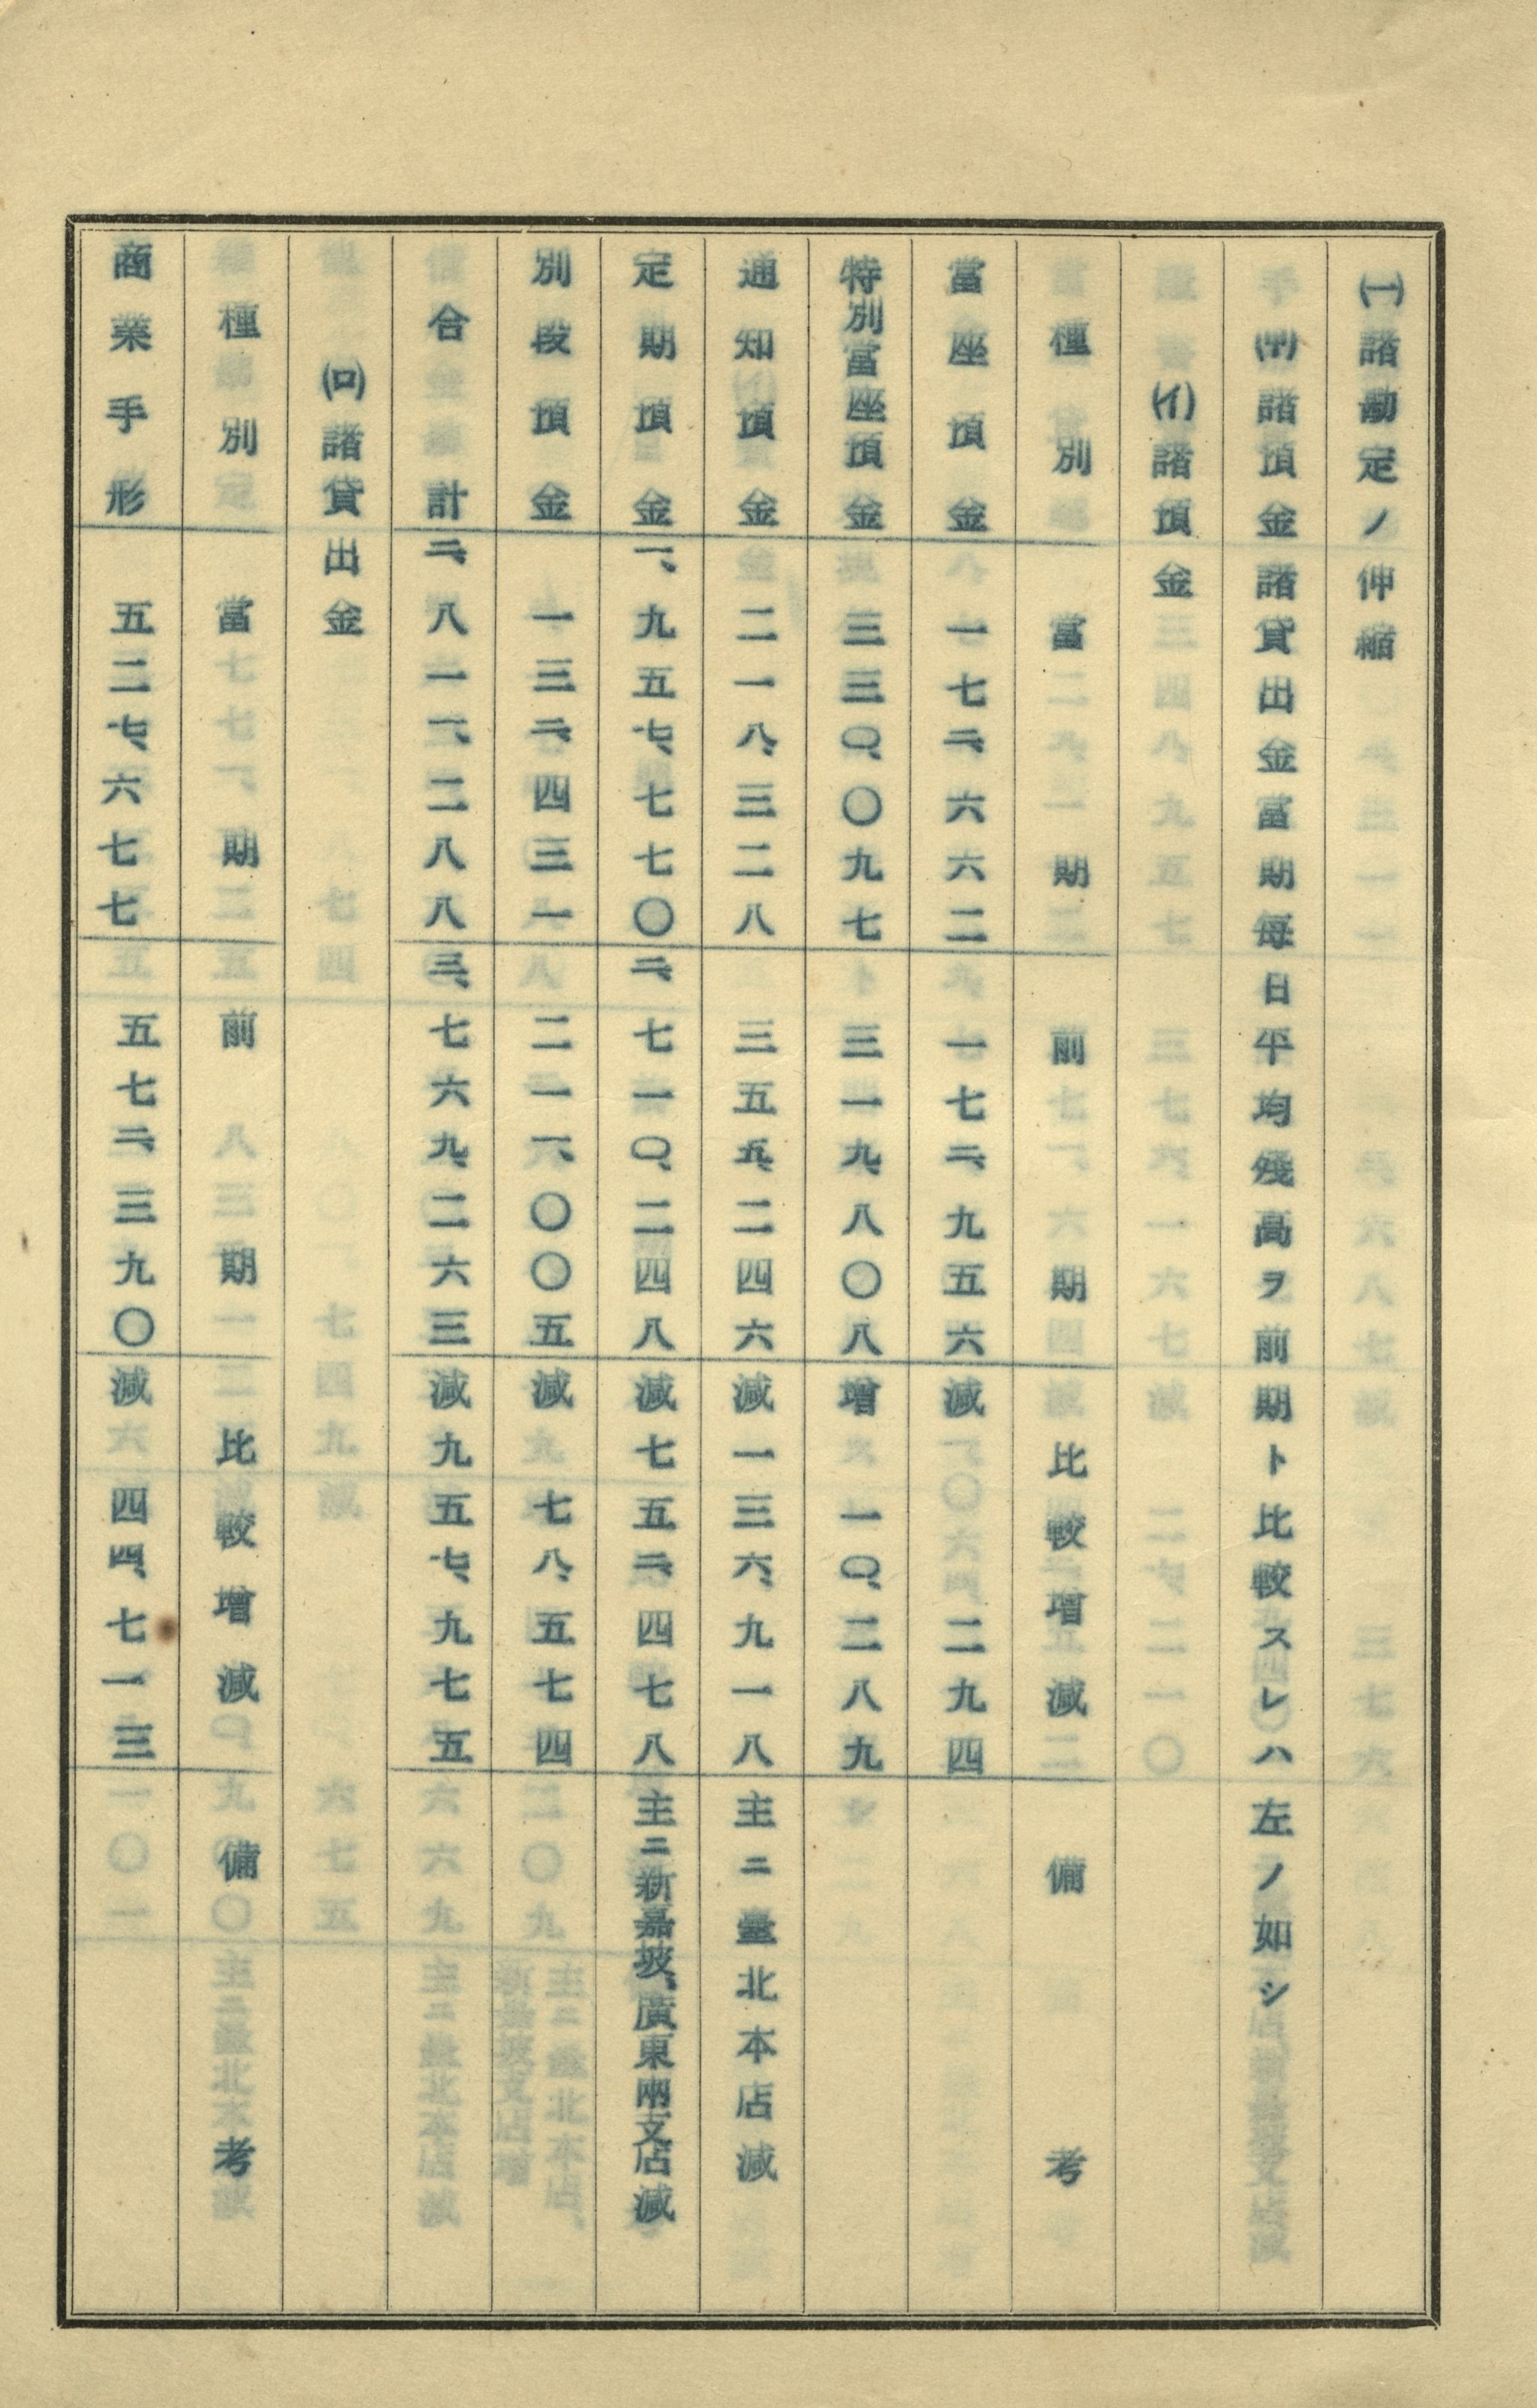 ㈠諸勘定ノ伸縮
(甲)諸預金諸貸出金當期每日平均残高ヲ前期ト比較スレハ左ノ如シ
(イ)諸預金
種別 當期 前期 比較增減 備考
當座預金 一七二、六六二 一七二、九五六 減 二九四
特別當座預金 三三〇、〇九七 三一九、八〇八 增 一〇、二八九
通知預金 二一八、三二八 三五五、二四六 減一三六、九一八 主ニ臺北本店減
定期預金 一、九五七、七七〇 二、七一〇、二四八 減七五二、四七八 主ニ新嘉坡、廣東兩支店減
別段預金 一三二、四三一 二一一、〇〇五 減 七八、五七四
合計 二、八一一、二八八 三、七六九、二六三 減九五七、九七五
(ロ)諸貸出金
種別 當期 前期 比較增減 備考
商業手形 五二七、六七七 五七二、三九〇 減 四四、七一三